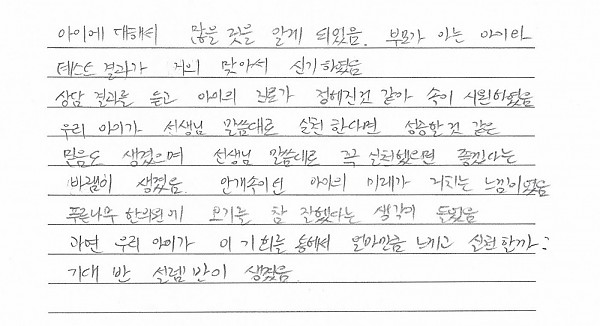 아이에 대해서 많을 것을 알게 되있음. 부모가 아는 아이와
테스트 결과가 거의 맞아서 신기하였음
상담 결과를 듣고 아이의 진로가 정해진것 같아 속이 시원하였음
우리 아이가 선생님 말씀대로 실천한다면 성공할것 같은
믿음도 생겼으며 선생님 말씀대로 꼭 실천했으면 좋겠다는
바램이 생겼음. 안개속이던 아이의 미래가 거치는 느낌이였음
푸른나무 한의원에 오기를 참 잘했다는 생각이 들었음
과연 우리 아이가 이 기회를 통해서 얼마만큼 느끼고 실천할까?
기대 반 설렘 반이 생겼음.